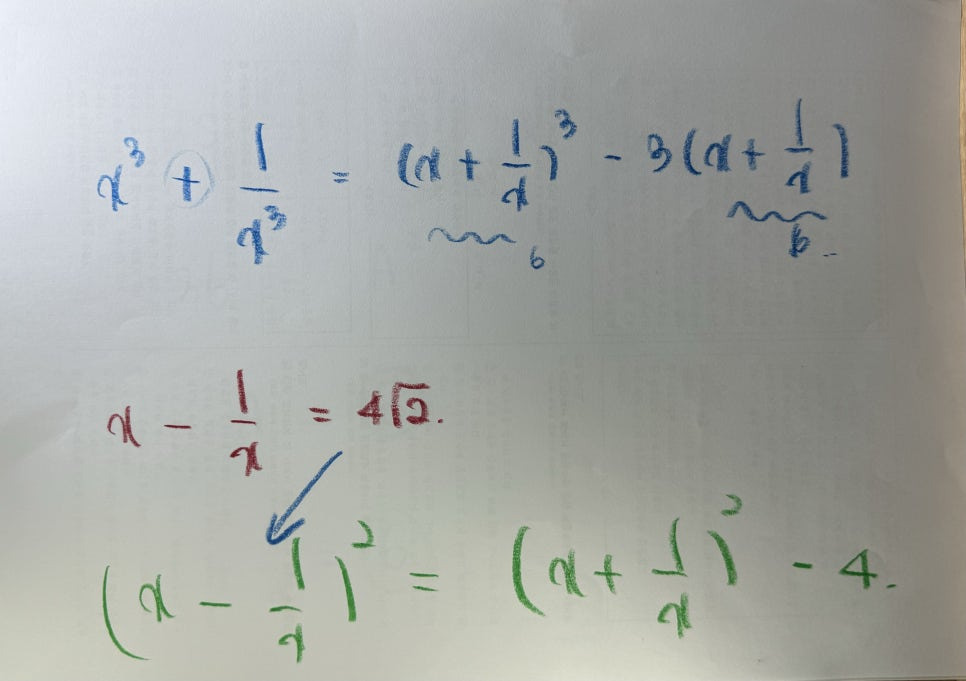 x³ + 1/x³ = (x + 1/x)³ - 3(x + 1/x)
6 6
x - 1/x = 4√2.
(x - 1/x)² = (x + 1/x)² - 4.